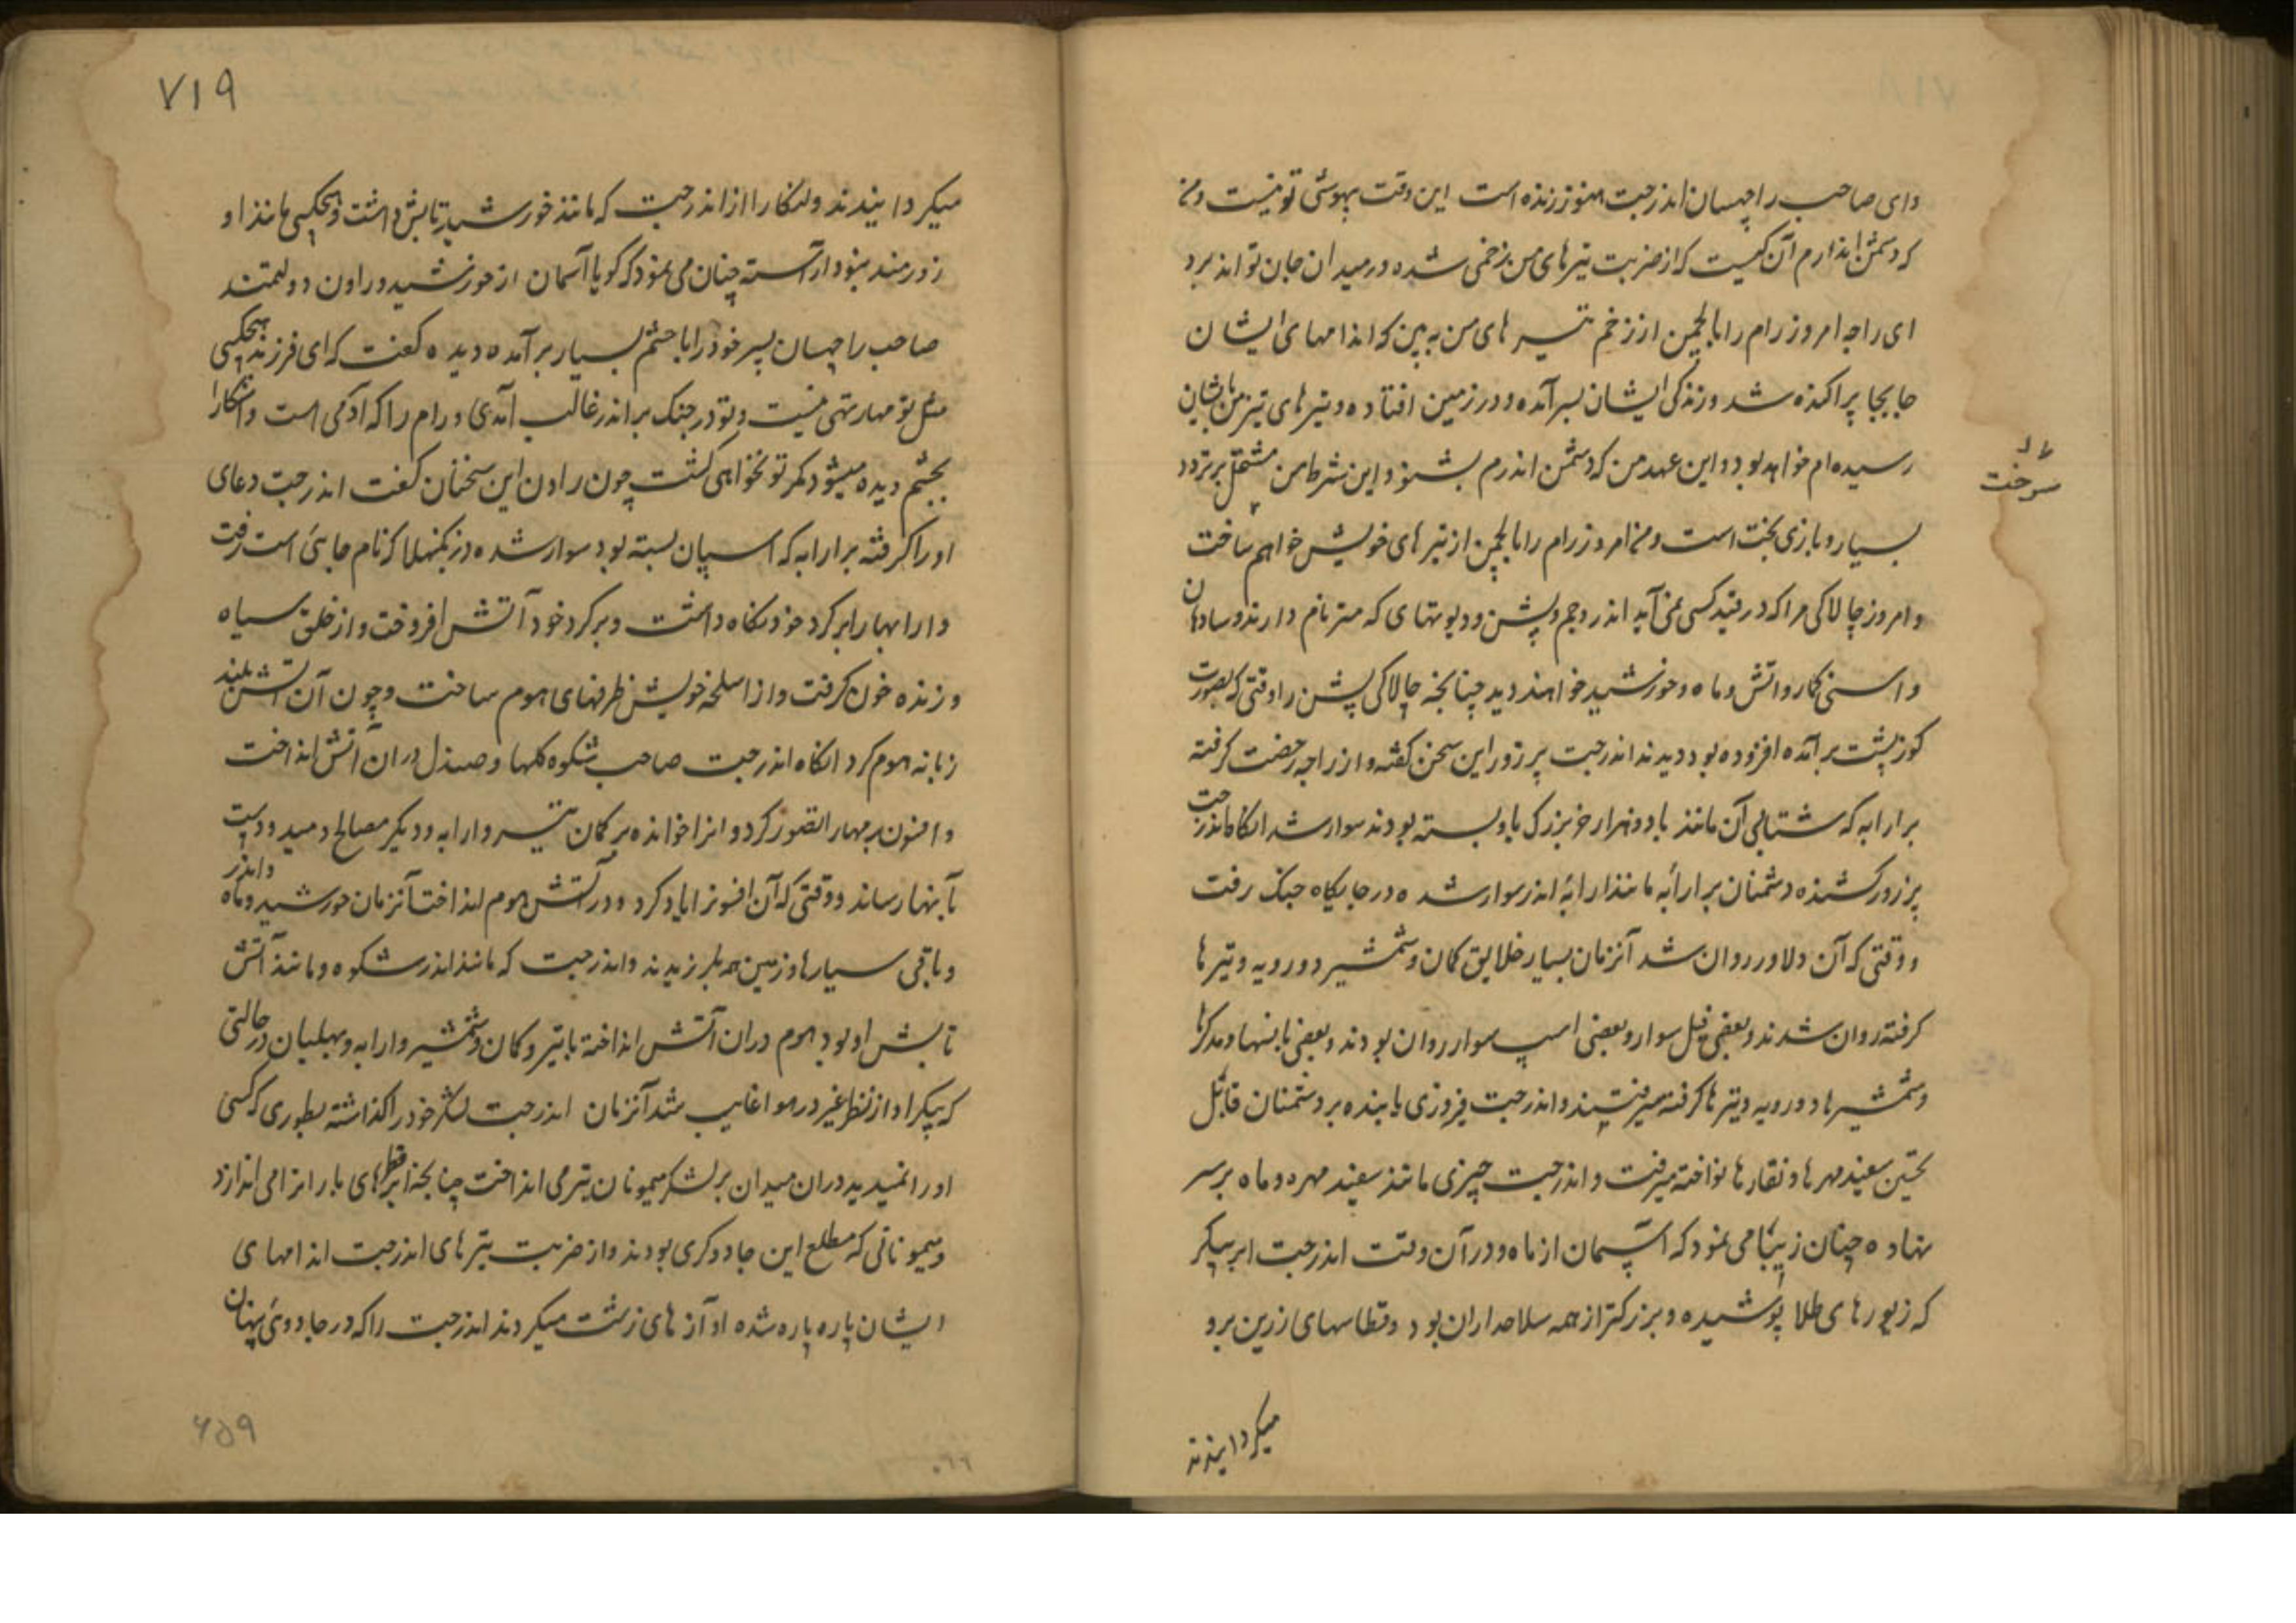 وای صاحب راچهسان اندرجیت هنوز زنده است این وقت بیهوشی تو نیست ومن
که دشمن اندارم آن کیست که از ضربت تیرهای من زخمی شده در میدان جان تواند برد
ای راجه امروز رام را بالچمن از زخم تیرهای من به بین که اندامهای ایشان
جابجا پراکنده شد وزندگی ایشان بسر آمده ودر زمین افتاده وتیرهای تیز من بایشان
رسیده ام خواهد بود واین عهد من که دشمن اندرم بشنو واین شرط من مشتمل بر تردد
بسیار وبازی بخت است ومن امروز رام را بالچمن از تیرهای خویش خواهم ساخت
وامروز چالاکی مرا که در قید کسی نمی آید اندر وجم وبشن ودیوتهای که متر نام دارند وسادهان
واسنی کار واتش وماه وخورشید خواهند دید چنانچه چالاکی بشن را وقتی که بصورت
کوزپشت برآمده افزوده بود دیدند اندرجیت پرزور این سخن گفته واز راجه رخصت گرفته
برارابه که شتابی آن مانند باد وهزار خر بزرک باو بسته بودند سوار شد انکاه اندرجیت
پرزور کشنده دشمنان برارابه مانند ارابه اندر سوار شده در جایگاه جنک رفت
ووقتی که آن دلاور روان شد آنزمان بسیار خلایق کمان وشمشیر دورویه وتیرها
گرفته روان شدند وبعضی فیل سوار وبعضی اسپ سوار روان بودند وبعضی بانها ومدکرها
وشمشیرها دورویه وتیرها گرفته میرفتند واندرجیت فیروزی یابنده بر دشمنان قابل
تحسین سفید مهرها ونقارها نواخته میرفت واندرجیت چیزی مانند سفید مهره وماه برسر
نهاده چنان زیبا می نمود که آسمان از ماه ودر آن وقت اندرجیت ابر پیکر
که زیورهای طلا پوشیده وبزرکتر از همه سلاحداران بود وقطاسهای زرین برو
میکردانیدند
سوخت
۷۱۹
میکردانیدند ولنکا را از اندرجیت که مانند خورشید تابش داشت وهیچکسی مانند او
زورمند نبود آراسته چنان می نمود که کویا آسمان از خورشید وراون دولتمند
صاحب راچهسان پسر خود را با حشم بسیار برآمده دیده گفت که ای فرزند هیچکسی
مثل تو مهارتهی نیست وتو در جنک براندر غالب آمدی ورام را که آدمی است واشکارا
بچشم دیده میشود مکر تو نخواهی کشت چون راون این سخنان گفت اندرجیت دعای
او را گرفته برارابه که اسپان بسته بود سوار شده در نکمنهلا که نام جائی است رفت
وارابها را بر گرد خود نگاه داشت وبر گرد خود آتش افروخت واز خلق سیاه
وزنده خون گرفت واز اسلحه خویش ظرفهای هوم ساخت وچون آن آتش بلند
زبانه هوم کرد انکاه اندرجیت صاحب شکوه گلها وصندل دران آتش انداخت
وافسون برمهار تصور کرد وانرا خوانده بر کمان تیر وارابه ودیگر مصالح دمید ودست
بآنها رساند ووقتی که آن افسونرا یاد کرد ودر آتش هوم انداخت آنزمان خورشید وماه واندر
وباقی سیارها وزمین همه بلرزیدند واندرجیت که مانند اندر شکوه ومانند آتش
تابش او بود هوم دران آتش انداخته باتیر وکمان وشمشیر وارابه وبهلبان در حالتی
که پیکر او از نظر غیر در هوا غایب شد آنزمان اندرجیت لشکر خود را گذاشته بطوری که کسی
او را نمیدید دران میدان بر لشکر میمونان تیر می انداخت چنانچه ابر قطرهای باران را می اندازد
ومیمونانی که مطلع این جادوکری بودند واز ضربت تیرهای اندرجیت اندامهای
ایشان پاره پاره شده آوازهای زشت میکردند اندرجیت را که در جادوئی پنهان
۶۵۹